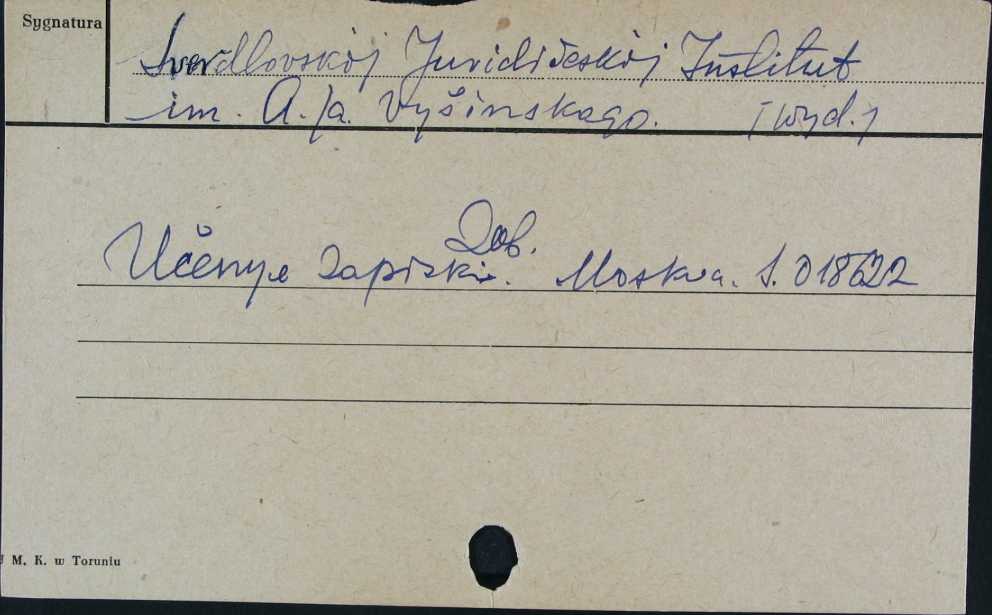 Sygnatura
Sverdlovskòj Juridičeskòj Institut
im. A. Ja. Vyšinskago. [wyd.]
Dob.
Učenye zapiski. Moskva. S. 018622
U M. K. w Toruniu